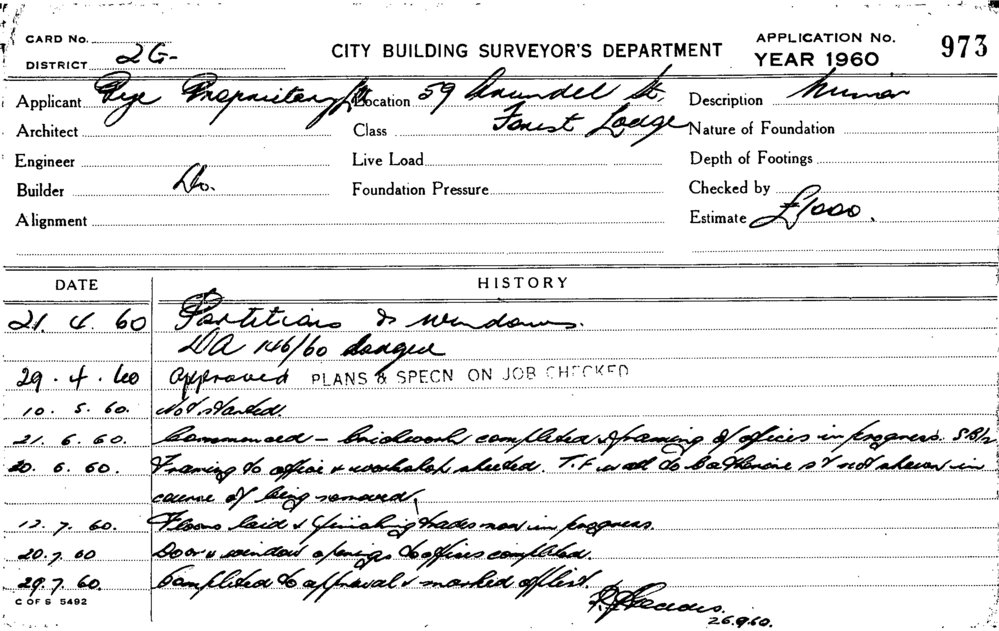 CARD No.
DISTRICT 2G-
CITY BUILDING SURVEYOR'S DEPARTMENT
APPLICATION No. 973
YEAR 1960
Applicant Pye Proprietary Location 59 Arundel St, Description
Architect Class Forest Lodge Nature of Foundation
Engineer Live Load Depth of Footings
Builder Do. Foundation Pressure Checked by
Alignment Estimate £1000.
DATE HISTORY
21. 4. 60 Partitions & windows.
DA 146/60 lodged
29. 4. 60 Approved PLANS & SPECN ON JOB CHECKED
10. 5. 60. Not started.
21. 6. 60. Commenced – brickwork completed & framing of offices in progress.
20. 6. 60. Framing to office & workshop sheeted. T.F. wall to Catherine St not shewn in
course of being removed.
12. 7. 60. Floors laid & finishing trades now in progress
20. 7. 60 Door & window openings to offices completed.
29. 7. 60. Completed to approval & marked off list.
C OF S 5492
26.9.60.